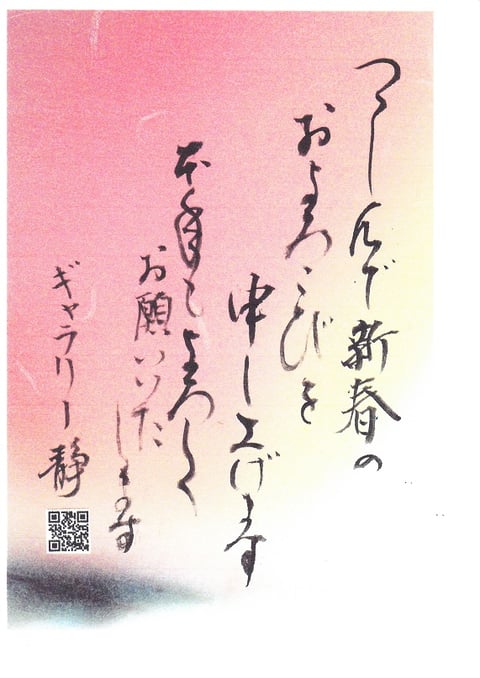 つゝしんで新春の
およろこびを
申し上げます
本年もよろしく
お願いいたします
ギャラリー静